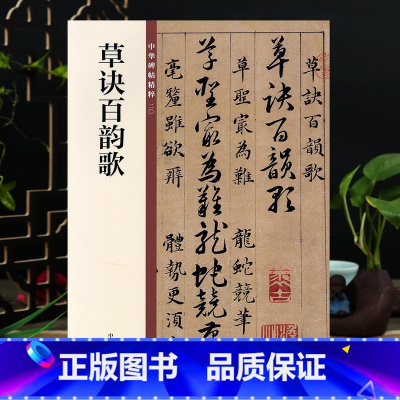 草诀百韵歌
中华碑帖精粹 二〇
草訣百韻歌
草訣百韻歌
草聖冣為難 龍蛇競筆
草聖冣為難龍蛇競
毫釐雖欲辨 體勢更須
中